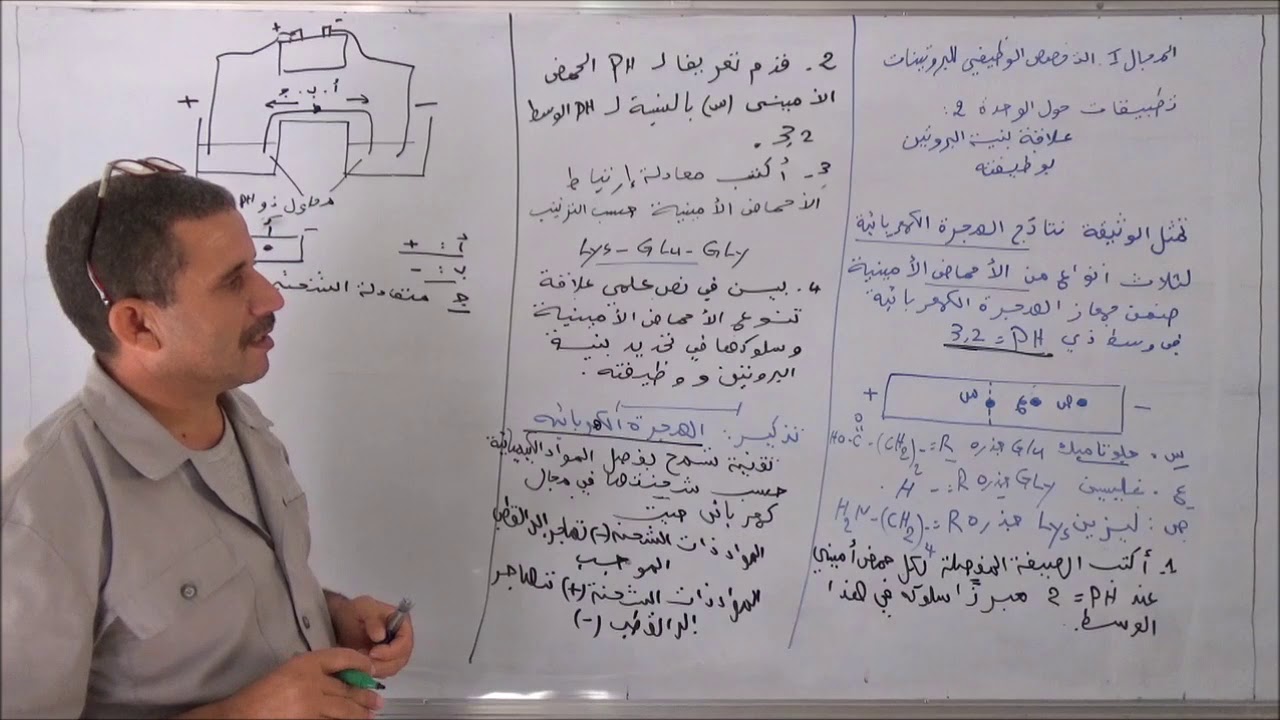 المجال I. التخصص الوظيفي للبروتينات
تطبيقات حول الوحدة 2:
علاقة بنية البروتين
بوظيفته
تمثل الوثيقة نتائج الهجرة الكهربائية
لثلاث أنواع من الأحماض الأمينية
ضمن جهاز الهجرة الكهربائية
في وسط ذي PH = 3,2
+ س ع ص -
س. جلوتاميك Glu جذره R =: HO-C-(CH2)2-
O
ع. غليسين GLy جذره R =: H-
ص: ليزين Lys جذره R =: H2N-(CH2)4-
1. أكتب الصيغة المفصلة لكل حمض أميني
عند PH = 2 مبرزا سلوكه في هذا
الوسط.
2. قدم تعريفا لـ PH الحمض
الأميني (س) بالنسبة لـ PH الوسط
3,2.
3. أكتب معادلة إرتباط
الأحماض الأمينية حسب الترتيب
Lys-GLu-GLy
4. بين في نص علمي علاقة
تنوع الأحماض الأمينية
وسلوكها في تحديد بنية
البروتين و وظيفته.
تذكير: الهجرة الكهربائية
تقنية تسمح بفصل المواد الكيميائية
حسب شحنتها في مجال
كهربائي حيث
المواد ذات الشحنة (-) تهاجر الى القطب
الموجب
المواد ذات الشحنة (+) تهاجر
إلى القطب (-)
+ -
أ. ب. ج
+ -
محلول ذو PH
أ -
أ: +
ب: -
ج متعادلة الشحنة